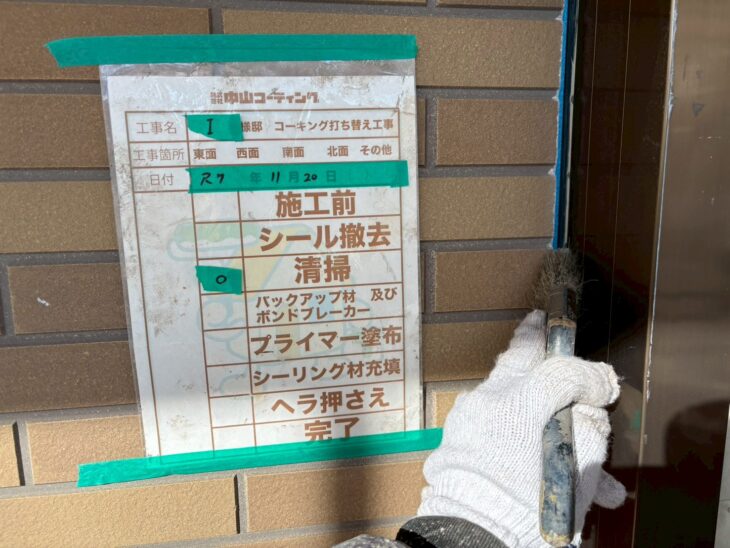 株式会社 中山コーティング
工事名 I 様邸 コーキング打ち替え工事
工事箇所 東面 西面 南面 北面 その他
日付 R7 年 11 月 20 日
施工前
シール撤去
○ 清掃
バックアップ材 及び
ボンドブレーカー
プライマー塗布
シーリング材充填
ヘラ押さえ
完了